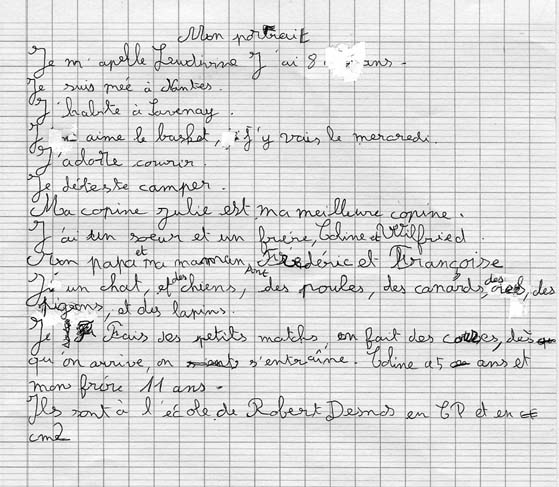 Mon portrait
Je m'apelle Ludivine J'ai 8 ans.
Je suis née à Nantes.
J'habite à Savenay.
J'aime le basket, j'y vais le mercredi.
J'adore courir.
Je déteste camper.
Ma copine Julie est ma meilleure copine.
J'ai un soeur et un frère, Coline et Wilfried.
Mon papa et ma maman, Frédéric et Françoise
J'ai un chat, et des chiens, des poules, des canards, des oies, des
pigeons, et des lapins.
Je Fais des petits matchs, on fait des courses, dès
qu'on arrive, on s'entraîne. Coline a 5 ans et
mon frère 11 ans.
Ils sont à l'école de Robert Desnos en CP et en
cm2